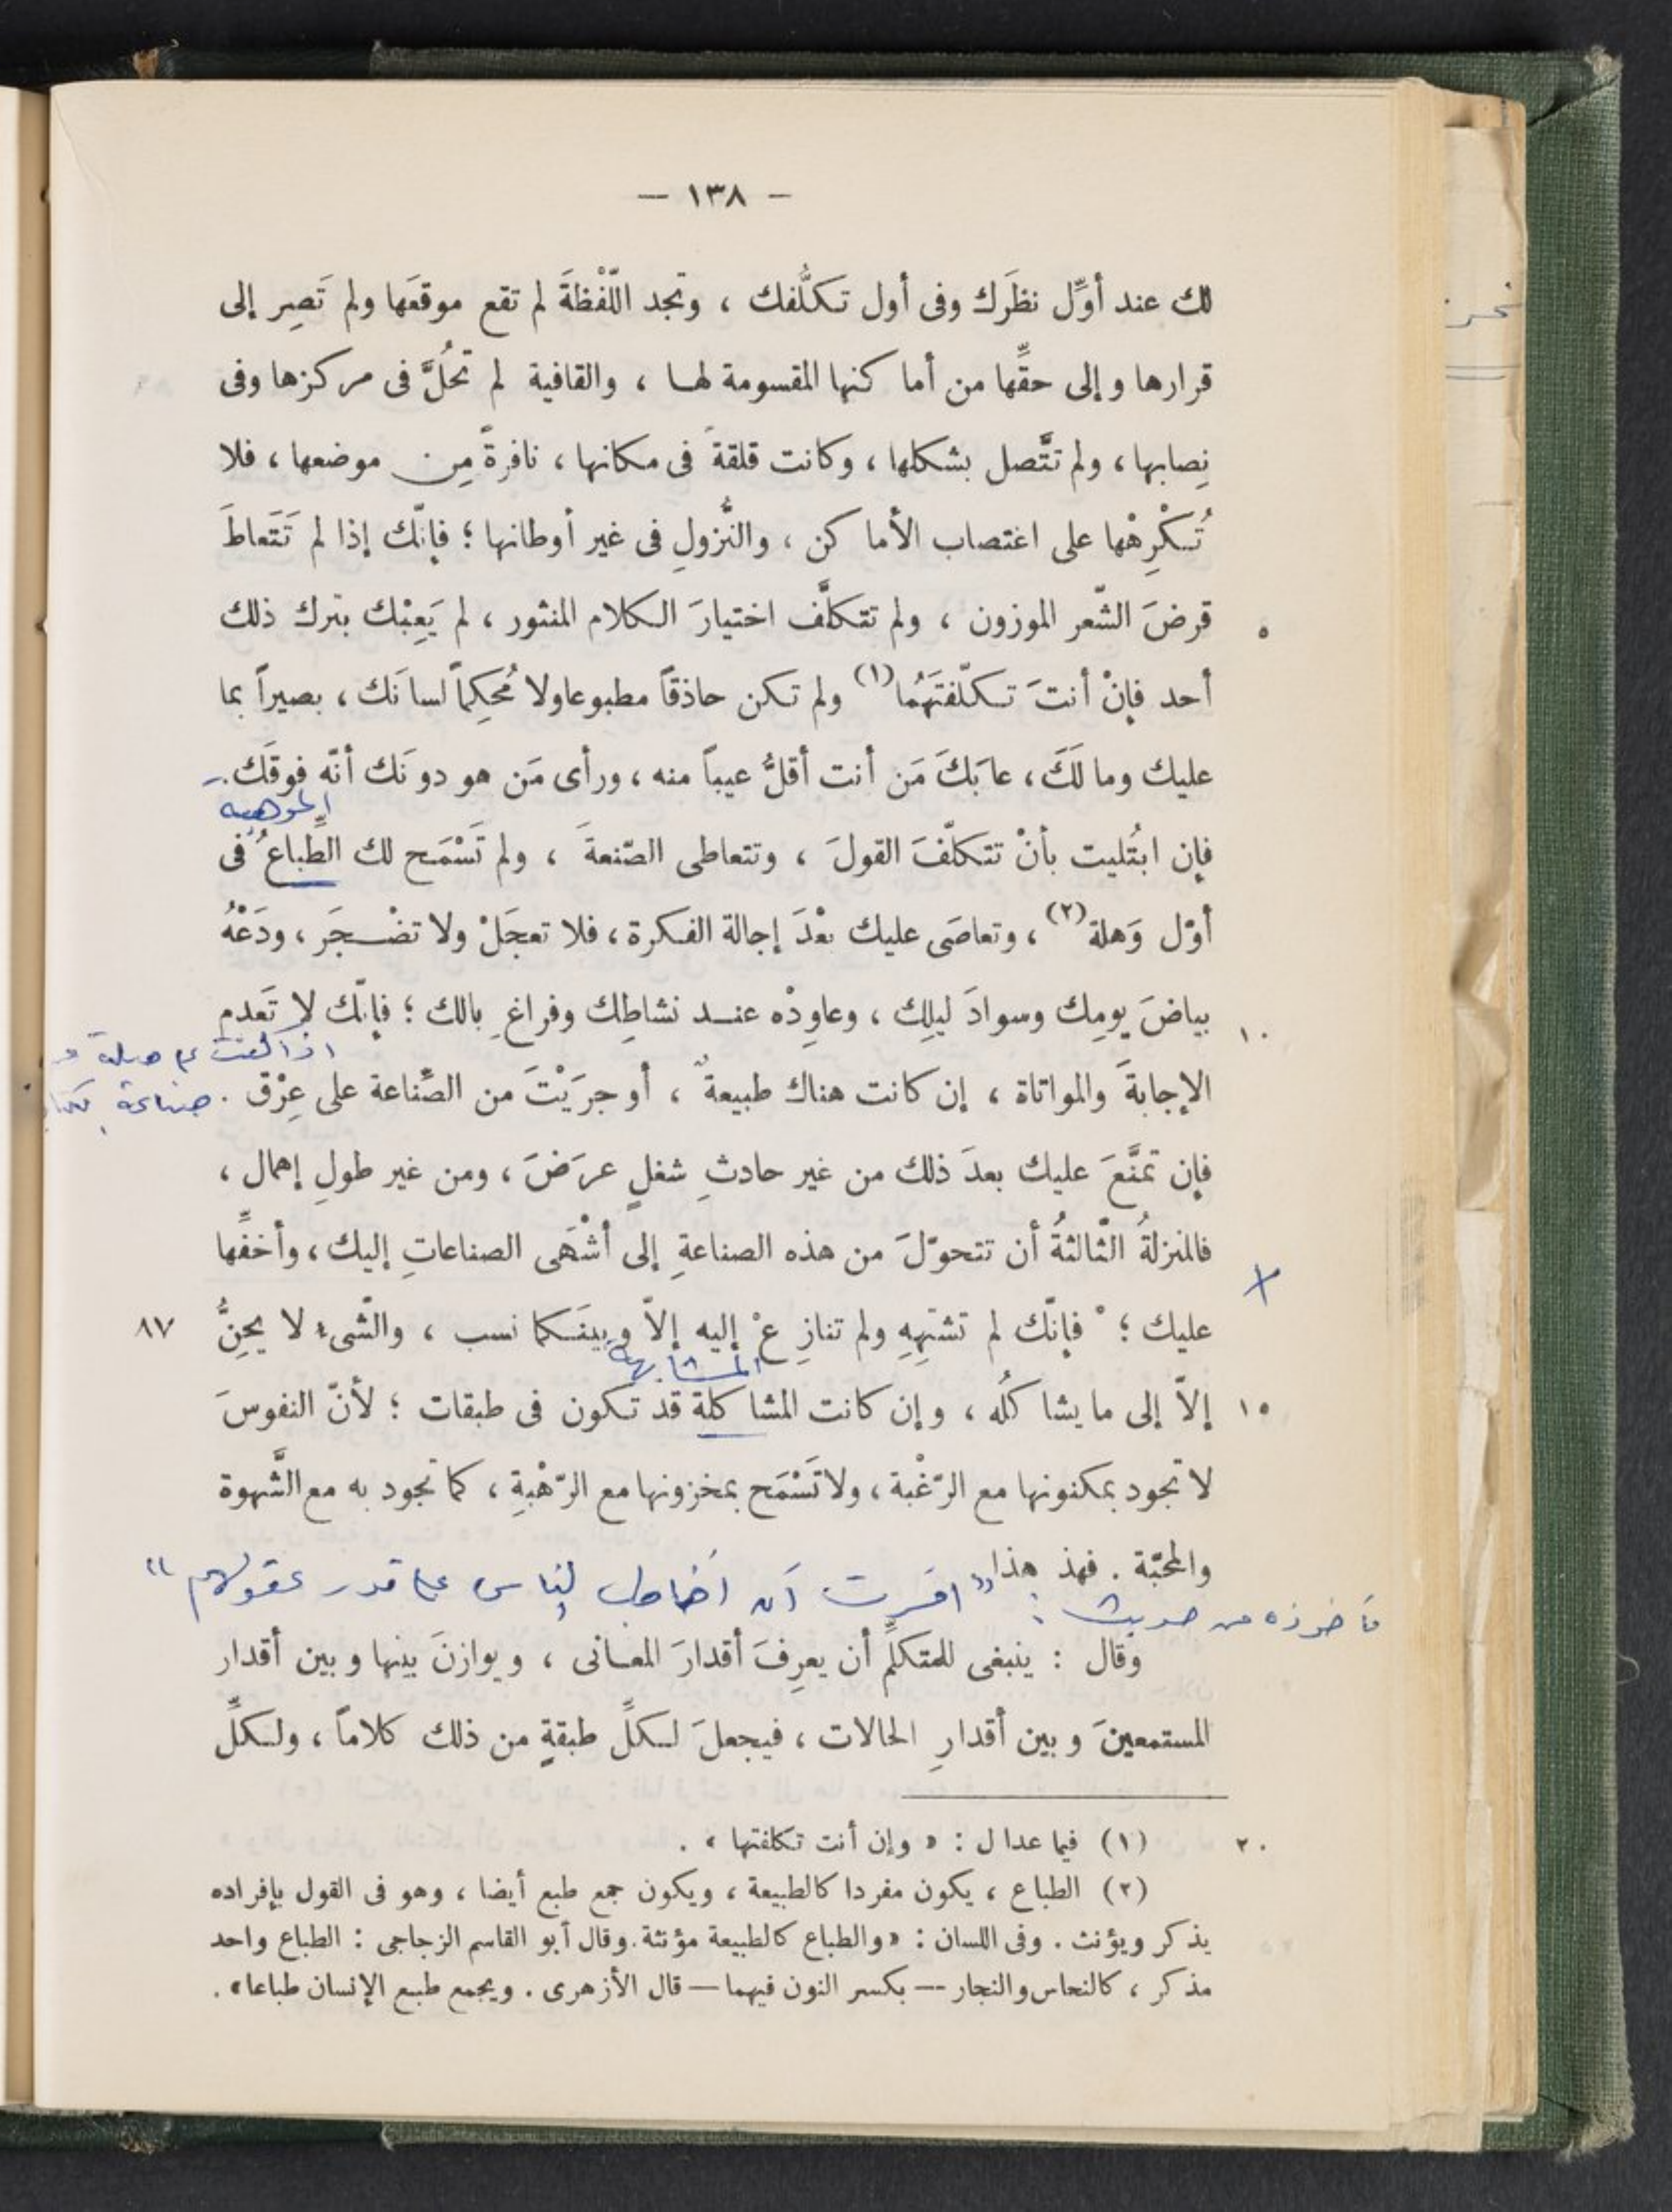 — ١٣٨ —
لك عند أوَّل نظَرك وفى أول تكلُّفك ، وتجد اللَّفْظةَ لم تقع موقعَها ولم تَصِر إلى
قرارها وإلى حقِّها من أماكنها المقسومة لها ، والقافية لم تحُلَّ فى مركزها وفى
نِصابها ، ولم تتَّصل بشكلها ، وكانت قلقةً فى مكانها ، نافرةً مِن موضعها ، فلا
تُكْرِهْها على اغتصاب الأماكن ، والنُّزولِ فى غير أوطانها ؛ فإنّك إذا لم تَتَعاطَ
٥ قرضَ الشّعر الموزون ، ولم تتكلَّف اختيارَ الكلام المنثور ، لم يَعِبْك بترك ذلك
أحد فإنْ أنتَ تكلّفتَهُما (١) ولم تكن حاذقاً مطبوعا ولا مُحكِماً لسانَك ، بصيراً بما
عليك وما لَكَ ، عابَكَ مَن أنت أقلُّ عيباً منه ، ورأى مَن هو دونَك أنّه فوقَك .
الموهبه
فإن ابتُليت بأنْ تتكلّفَ القولَ ، وتتعاطى الصّنعةَ ، ولم تَسْمَح لك الطِّباعُ فى
أوّل وَهلة (٢) ، وتعاصَى عليك بعْدَ إجالة الفكرة ، فلا تعجَلْ ولا تضْجَر ، ودَعْهُ
١٠ بياضَ يومِك وسوادَ ليلِك ، وعاوِدْه عند نشاطِك وفراغِ بالك ؛ فإنّك لا تَعدم
اذا كنت على صلة و
الإجابةَ والمواتاة ، إن كانت هناك طبيعةٌ ، أو جرَيْتَ من الصِّناعة على عِرْق .
صناعة
فإن تمنَّعَ عليك بعدَ ذلك من غير حادثِ شغلٍ عرَضَ ، ومن غير طولِ إهمال ،
فالمنزلةُ الثّالثةُ أن تتحوّلَ من هذه الصناعةِ إلى أشْهَى الصناعاتِ إليك ، وأخفِّها
عليك ؛ ° فإنّك لم تشتهِهِ ولم تنازِعْ إليه إلاّ وبينَكما نسب ، والشّىء لا يحِنُّ ٨٧
المشابهة
١٥ إلاّ إلى ما يشاكلُه ، وإن كانت المشاكلة قد تكون فى طبقات ؛ لأنّ النفوسَ
لا تجود بمكنونها مع الرّغْبة ، ولا تَسْمَح بمخزونها مع الرّهْبةِ ، كما تجود به مع الشَّهوة
والمحبّة . فهذ هذا
مأخوذه من حديث : " امرت أن اخاطب الناس على قدر عقولهم "
وقال : ينبغى للمتكلِّم أن يعرِفَ أقدارَ المعانى ، ويوازنَ بينها وبين أقدار
المستمعينَ وبين أقدارِ الحالات ، فيجعلَ لكلِّ طبقةٍ من ذلك كلاماً ، ولكلِّ
٢٠ (١) فيما عدا ل : « وإن أنت تكلفتها » .
(٢) الطباع ، يكون مفردا كالطبيعة ، ويكون جمع طبع أيضا ، وهو فى القول بإفراده
يذكر ويؤنث . وفى اللسان : « والطباع كالطبيعة مؤنثة . وقال أبو القاسم الزجاجى : الطباع واحد
مذكر ، كالنحاس والنجار — بكسر النون فيهما — قال الأزهرى . ويجمع طبع الإنسان طباعا » .